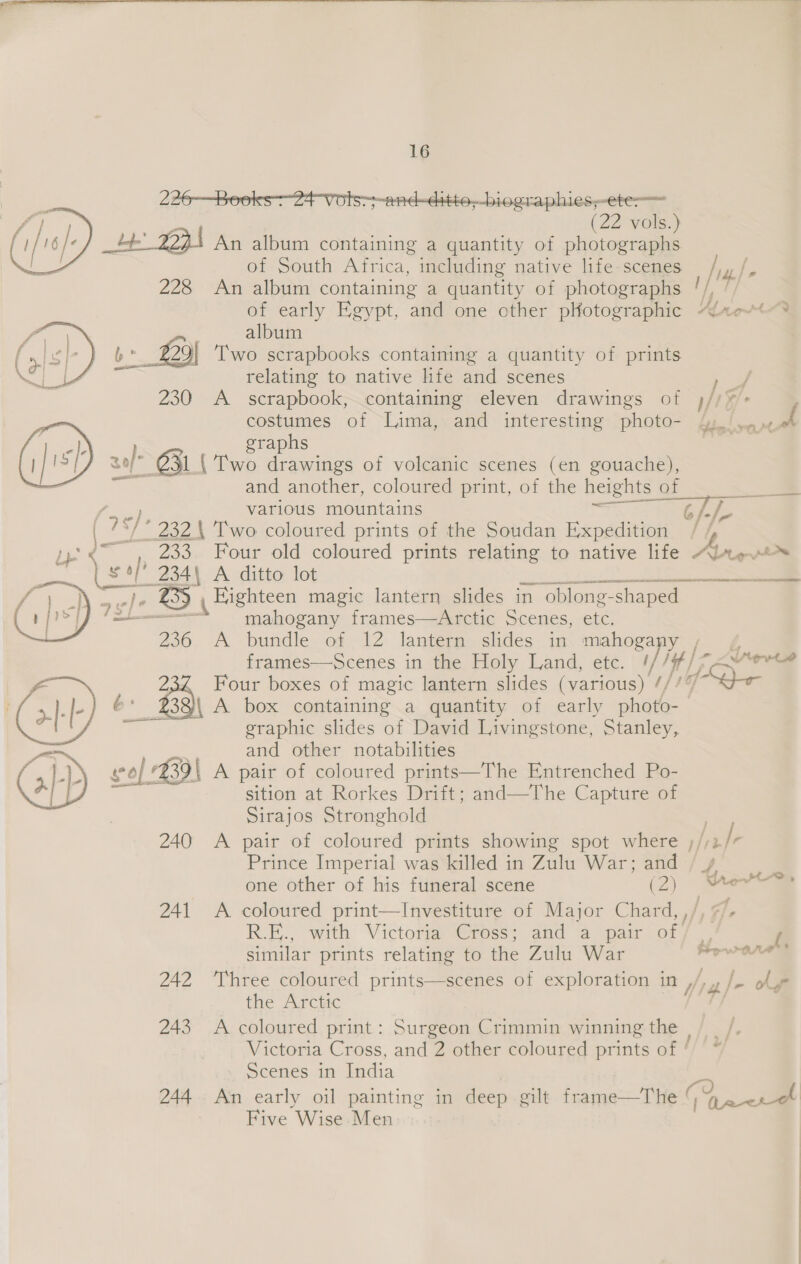 16
226 Books: 24 vols.; and ditto, biographies, etc.
(22 vols.)
227 An album containing a quantity of photographs
of South Africa, including native life scenes
228 An album containing a quantity of photographs
of early Egypt, and one other photographic
album
229 Two scrapbooks containing a quantity of prints
relating to native life and scenes
230 A scrapbook, containing eleven drawings of
costumes of Lima, and interesting photo-
graphs
231 Two drawings of volcanic scenes (en gouache),
and another, coloured print, of the heights of
various mountains
232 Two coloured prints of the Soudan Expedition
233 Four old coloured prints relating to native life
234 A ditto lot
235 Eighteen magic lantern slides in oblong-shaped
mahogany frames—Arctic Scenes, etc.
236 A bundle of 12 lantern slides in mahogany
frames—Scenes in the Holy Land, etc.
237 Four boxes of magic lantern slides (various)
238 A box containing a quantity of early photo-
graphic slides of David Livingstone, Stanley,
and other notabilities
239 A pair of coloured prints—The Entrenched Po-
sition at Rorkes Drift; and—The Capture of
Sirajos Stronghold
240 A pair of coloured prints showing spot where
Prince Imperial was killed in Zulu War; and
one other of his funeral scene (2)
241 A coloured print—Investiture of Major Chard,
R.E., with Victoria Cross; and a pair of
similar prints relating to the Zulu War
242 Three coloured prints—scenes of exploration in
the Arctic
243 A coloured print: Surgeon Crimmin winning the
Victoria Cross, and 2 other coloured prints of
Scenes in India
244 An early oil painting in deep gilt frame—The
Five Wise Men